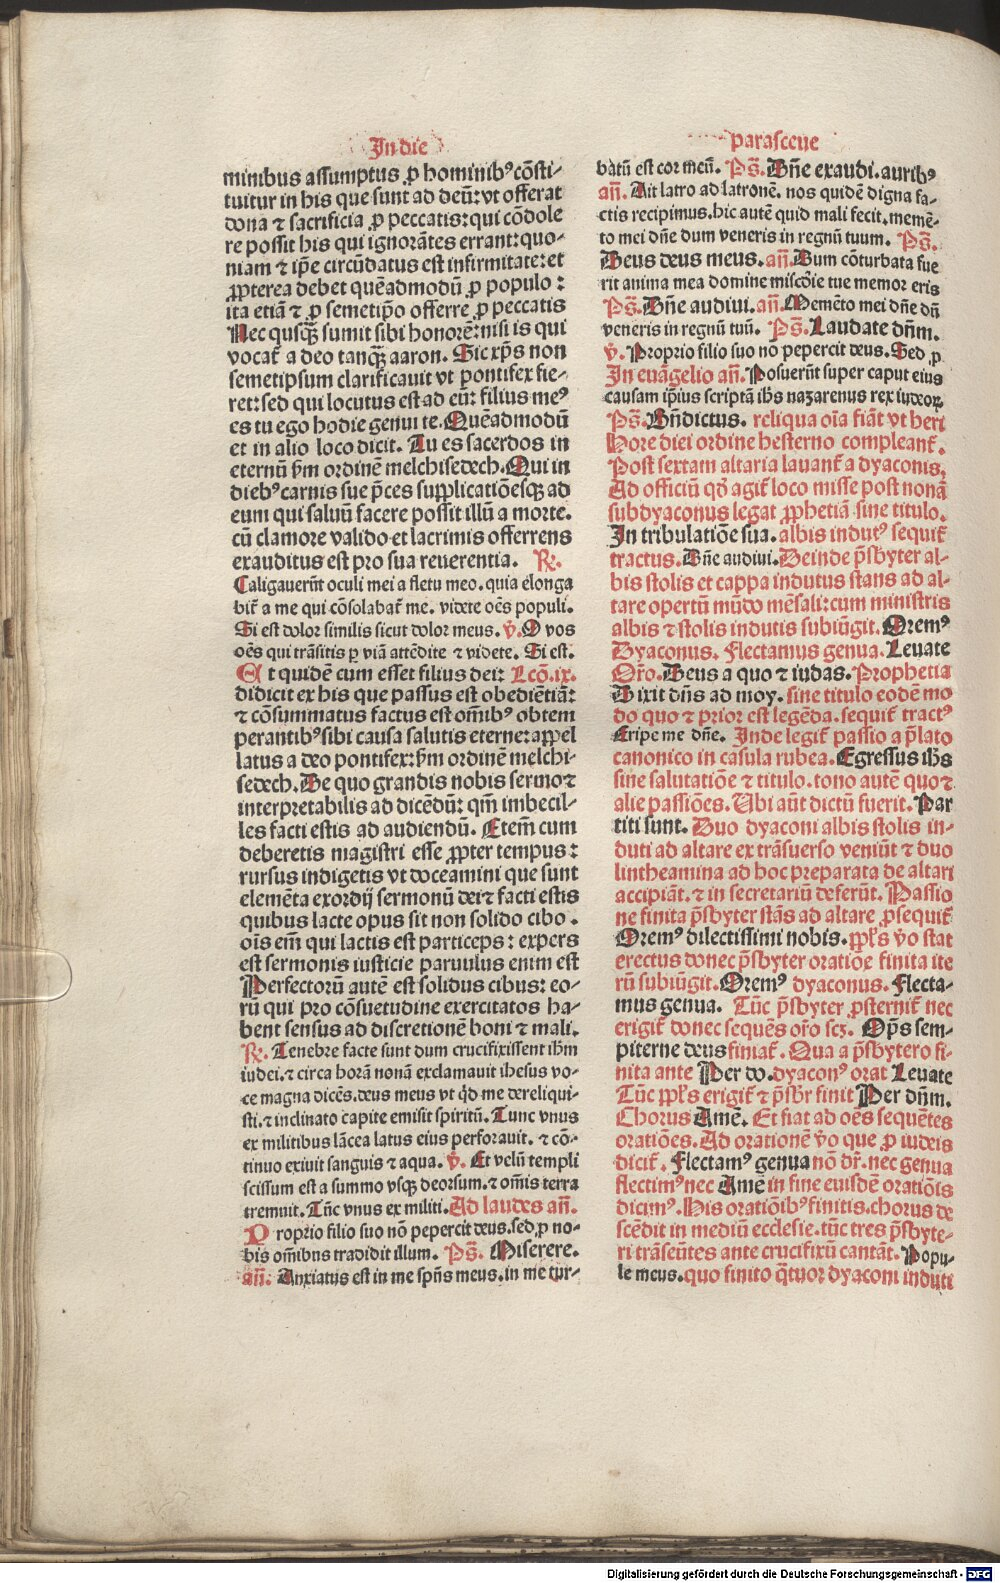 In die
minibus assumptus ꝓ hominibꝰ cōsti-
tuitur in his que sunt ad deū: vt offerat
dona ⁊ sacrificia ꝓ peccatis: qui cōdole
re possit his qui ignorātes errant: quo-
niam ⁊ ip̄e circūdatus est infirmitate: et
ꝓpterea debet quēadmodū ꝓ populo :
ita etiā ⁊ ꝓ semetip̄o offerre ꝓ peccatis
Nec qusq̄ꝫ sumit sibi honorē: nisi is qui
vocat̄ a deo tanq̄ꝫ aaron. Sic xp̄s non
semetipsum clarificauit vt pontifex fie-
ret: sed qui locutus est ad eū: filius meꝰ
es tu ego hodie genui te. Quēadmodū
et in alio loco dicit. Tu es sacerdos in
eternū ẜm ordinē melchisedech. Qui in
diebꝰ carnis sue p̄ces supplicatiōesqꝫ ad
eum qui saluū facere possit illū a morte.
cū clamore valido et lacrimis offerrens
exauditus est pro sua reuerentia. R̄.
Caligauerūt oculi mei a fletu meo. quia elonga
bit̄ a me qui cōsolabat̄ me. videte oēs populi.
Si est dolor similis sicut dolor meus. v̄. O vos
oēs qui trāsitis ꝑ viā attēdite ⁊ videte. Si est.
Et quidē cum esset filius dei: Lcō.ix.
didicit ex his que passus est obediētiā:
⁊ cōsummatus factus est om̄ibꝰ obtem
perantibꝰ sibi causa salutis eterne: appel
latus a deo pontifex: ẜm ordinē melchi-
sedech. De quo grandis nobis sermo ⁊
interpretabilis ad dicēdū: qm̄ imbecil-
les facti estis ad audiendū. Etem̄ cum
deberetis magistri esse ꝓpter tempus :
rursus indigetis vt doceamini que sunt
elemēta exordij sermonū dei ⁊ facti estis
quibus lacte opus sit non solido cibo .
ois em̄ qui lactis est particeps : expers
est sermonis iusticie paruulus enim est
Perfectorū autē est solidus cibus: eo-
rū qui pro cōsuetudine exercitatos ha-
bent sensus ad discretionē boni ⁊ mali.
R̄. Tenebre facte sunt dum crucifixissent ihm̄
iudei. ⁊ circa horā nonā exclamauit ihesus vo-
ce magna dicēs. deus meus vt qͥd me dereliqui-
sti. ⁊ inclinato capite emisit spiritū. Tunc vnus
ex militibus lācea latus eius perforauit. ⁊ cō-
tinuo exiuit sanguis ⁊ aqua. v̄. Et velū templi
scissum est a summo vsqꝫ deorsum. ⁊ om̄is terra
tremuit. Tūc vnus ex militi. Ad laudes an̄.
Proprio filio suo nō pepercit deus. sed ꝓ no-
bis om̄ibus tradidit illum. Ps̄. Miserere.
an̄. Anxiatus est in me sp̄ns meus. in me tur-
parasceue
batū est cor meū. Ps̄. Dn̄e exaudi. auribꝰ
an̄. Ait latro ad latronē. nos quidē digna fa-
ctis recipimus. hic autē quid mali fecit. memē-
to mei dn̄e dum veneris in regnū tuum. Ps̄.
Deus deus meus. an̄. Dum cōturbata fue
rit anima mea domine misc̄oie tue memor eris
Ps̄. Dn̄e audiui. an̄. Memēto mei dn̄e dū
veneris in regnū tuū. Ps̄. Laudate dn̄m.
v̄. Proprio filio suo nō pepercit deus. Sed ꝓ
In euāgelio an̄. Posuerūt super caput eius
causam ip̄ius scriptā ih̄s nazarenus rex iudeoꝝ
Ps̄. Bn̄dictus. reliqua oīa fiāt vt heri
Hore diei ordine hesterno compleant̄.
Post sextam altaria lauant̄ a dyaconis.
Ad officiū qd̄ agit̄ loco misse post nonā
subdyaconus legat ꝓphetiā sine titulo.
In tribulatiōe sua. albis indutꝰ sequit̄
tractus. Dn̄e audiui. Deinde p̄sbyter al-
bis stolis et cappa indutus stans ad al-
tare opertū mūdo mēsali: cum ministris
albis ⁊ stolis indutis subiūgit. Oremꝰ
Dyaconus. Flectamus genua. Leuate
Or̄o. Deus a quo ⁊ iudas. Prophetia
Dixit dn̄s ad moy. sine titulo eodē mo
do quo ⁊ prior est legēda. sequit̄ tractꝰ
Eripe me dn̄e. Inde legit̄ passio a p̄lato
canonico in casula rubea. Egressus ih̄s
sine salutatiōe ⁊ titulo. tono autē quo ⁊
alie passiōes. Ubi aūt dictū fuerit. Par
titi sunt. Duo dyaconi albis stolis in-
duti ad altare ex trāsuerso veniūt ⁊ duo
lintheamina ad hoc preparata de altari
accipiāt. ⁊ in secretariū deferūt. Passio
ne finita p̄sbyter stās ad altare ꝓsequit̄
Oremꝰ dilectissimi nobis. ppl̄s v̄o stat
erectus donec p̄sbyter oratiōe finita ite
rū subiūgit. Oremꝰ dyaconus. Flecta-
mus genua. Tūc p̄sbyter ꝓsternit̄ nec
erigit̄ donec sequēs or̄o scꝫ. Op̄s sem-
piterne deus finiat̄. Qua a p̄sbytero fi-
nita ante Per do. dyaconꝰ orat Leuate
Tūc ppl̄s erigit̄ ⁊ p̄sbr̄ finit Per dn̄m.
Chorus Amē. Et fiat ad oēs sequētes
oratiōes. Ad orationē v̄o que ꝓ iudeis
dicit̄. Flectamꝰ genua nō dr̄. nec genua
flectimꝰ nec Amē in fine eiusdē oratiōis
dicimꝰ. His oratiōibꝰ finitis. chorus de
scēdit in mediū ecclesie. tūc tres p̄sbyte-
ri trāseūtes ante crucifixū cantāt. Popu-
le meus. quo finito q̄tuor dyaconi induti
Digitalisierung gefördert durch die Deutsche Forschungsgemeinschaft - DFG